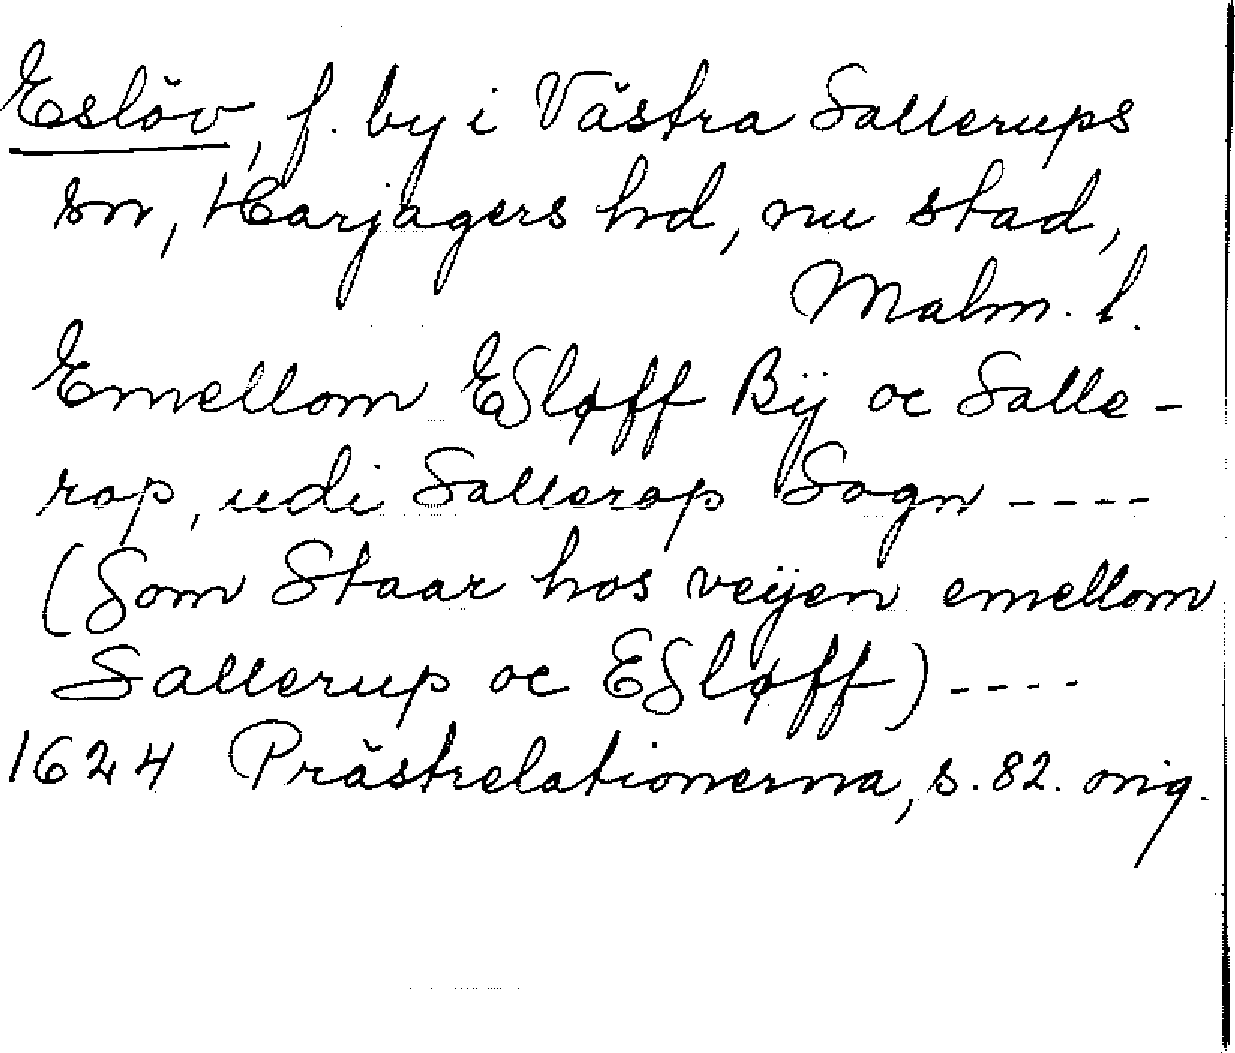 Eslöv, f. by i Västra Sallerups
sn, Harjagers hd, nu stad,
Malm. l.
Emellom ESløff Bÿ oc Salle-
rop, udi Sallerop Sogn ----
(Som Staar hos veÿen emellom
Sallerup oc ESløff) ----
1624 Prästrelationerna, s. 82. orig.